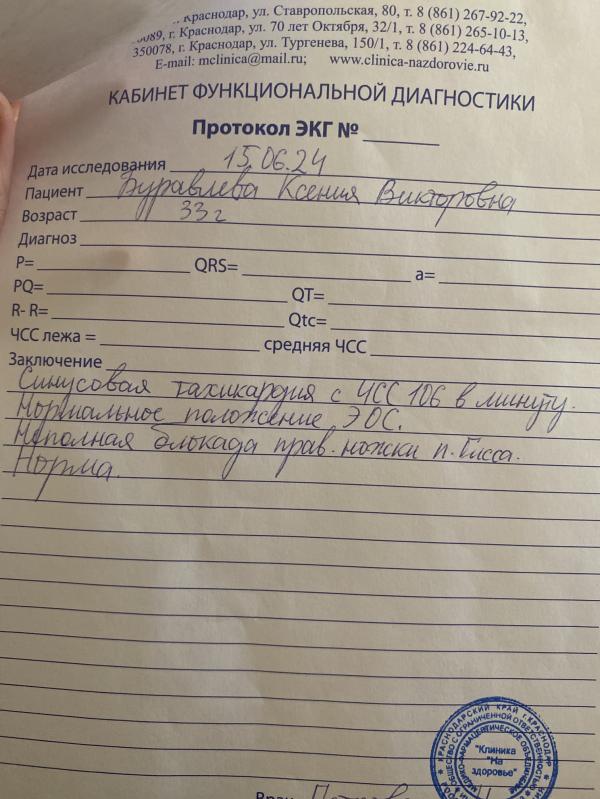 , Краснодар, ул. Ставропольская, 80, т. 8 (861) 267-92-22,
089, г. Краснодар, ул. 70 лет Октября, 32/1, т. 8 (861) 265-10-13,
350078, г. Краснодар, ул. Тургенева, 150/1, т. 8 (861) 224-64-43,
E-mail: mclinica@mail.ru; www.clinica-nazdorovie.ru
КАБИНЕТ ФУНКЦИОНАЛЬНОЙ ДИАГНОСТИКИ
Протокол ЭКГ №
Дата исследования 15.06.24
Пациент Буравлева Ксения Викторовна
Возраст 33 г
Диагноз
P= QRS= a=
PQ= QT=
R- R= Qtc=
ЧСС лежа = средняя ЧСС
Заключение
Синусовая тахикардия с ЧСС 106 в минуту.
Нормальное положение ЭОС.
Неполная блокада прав. ножки п. Гисса.
Норма.
КРАСНОДАРСКИЙ КРАЙ Г.КРАСНОДАР
ОБЩЕСТВО С ОГРАНИЧЕННОЙ ОТВЕТСТВЕННОСТЬЮ
"Клиника
"На
здоровье"
Врач